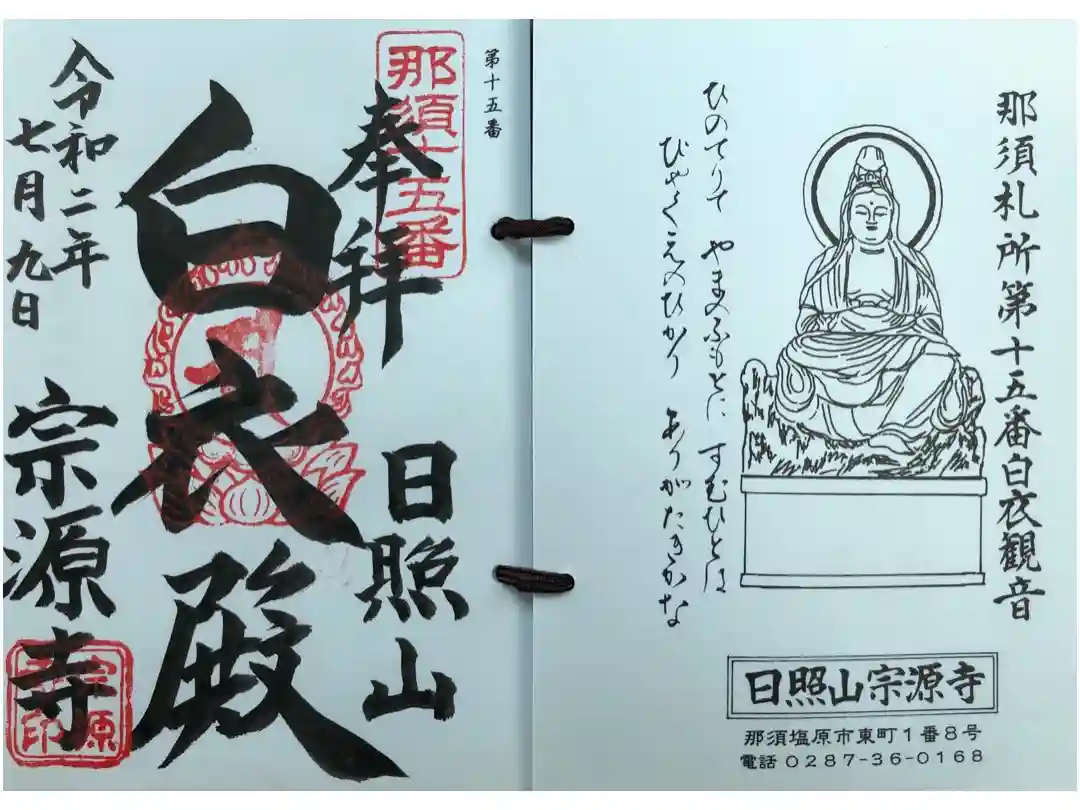 那須札所第十五番白衣観音
ひのてりて やまのふもとに すむひとは
びやくえのひかり ありがたきかな
日照山宗源寺
那須塩原市東町1番8号
電話 0287-36-0168
第十五番
那須十五番
奉拝
日照山
白衣殿
令和二年
七月九日
宗源寺